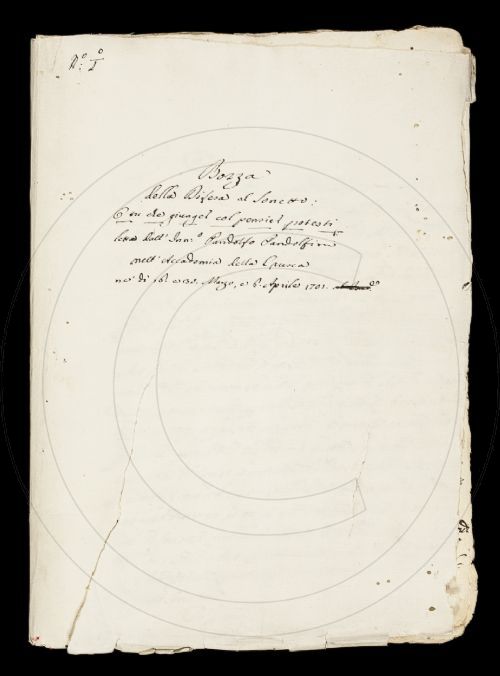 N:º I.º
Bozza
della Difesa al Sonetto:
O tu che giunger col pensier potesti
letta dall' Inn.º Pandolfo Pandolfini
nell' Accademia della Crusca
ne' dì 16. e 30. Marzo, e 6. Aprile 1701.